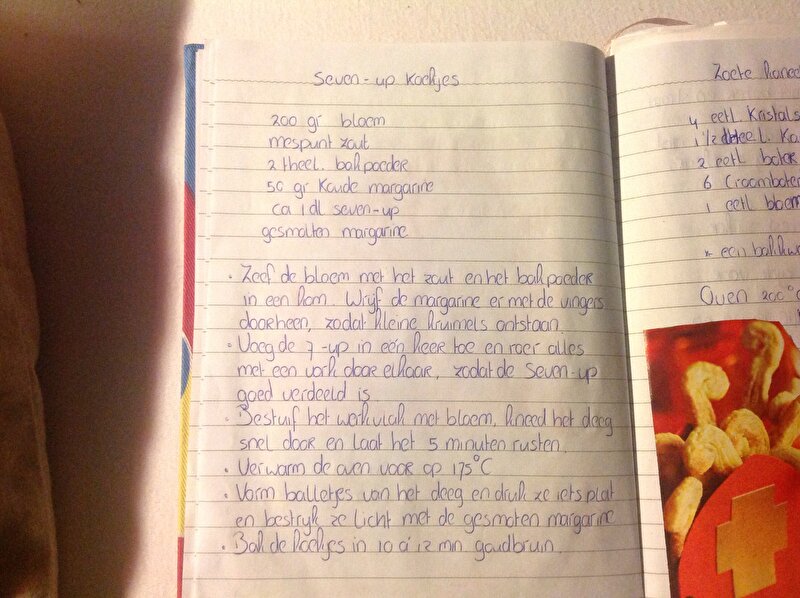 Seven-up koekjes
200 gr bloem
mespunt zout
2 theel. bakpoeder
50 gr koude margarine
ca 1 dl seven-up
gesmolten margarine
• Zeef de bloem met het zout en het bakpoeder
in een kom. Wrijf de margarine er met de vingers
doorheen, zodat kleine kruimels ontstaan.
• Voeg de 7-up in één keer toe en roer alles
met een vork door elkaar, zodat de seven-up
goed verdeeld is
• Bestuif het werkvlak met bloem, kneed het deeg
snel door en laat het 5 minuten rusten.
• Verwarm de oven voor op 175°C
• Vorm balletjes van het deeg en druk ze iets plat
en bestrijk ze licht met de gesmolten margarine
• Bak de koekjes in 10 à 12 min goudbruin.
Zoete
4 eetl. Kristals
1 1/2 theel. Ka
2 eetl boter
6 Croomboter
1 eetl bloem
* een bakkw
Oven 200°